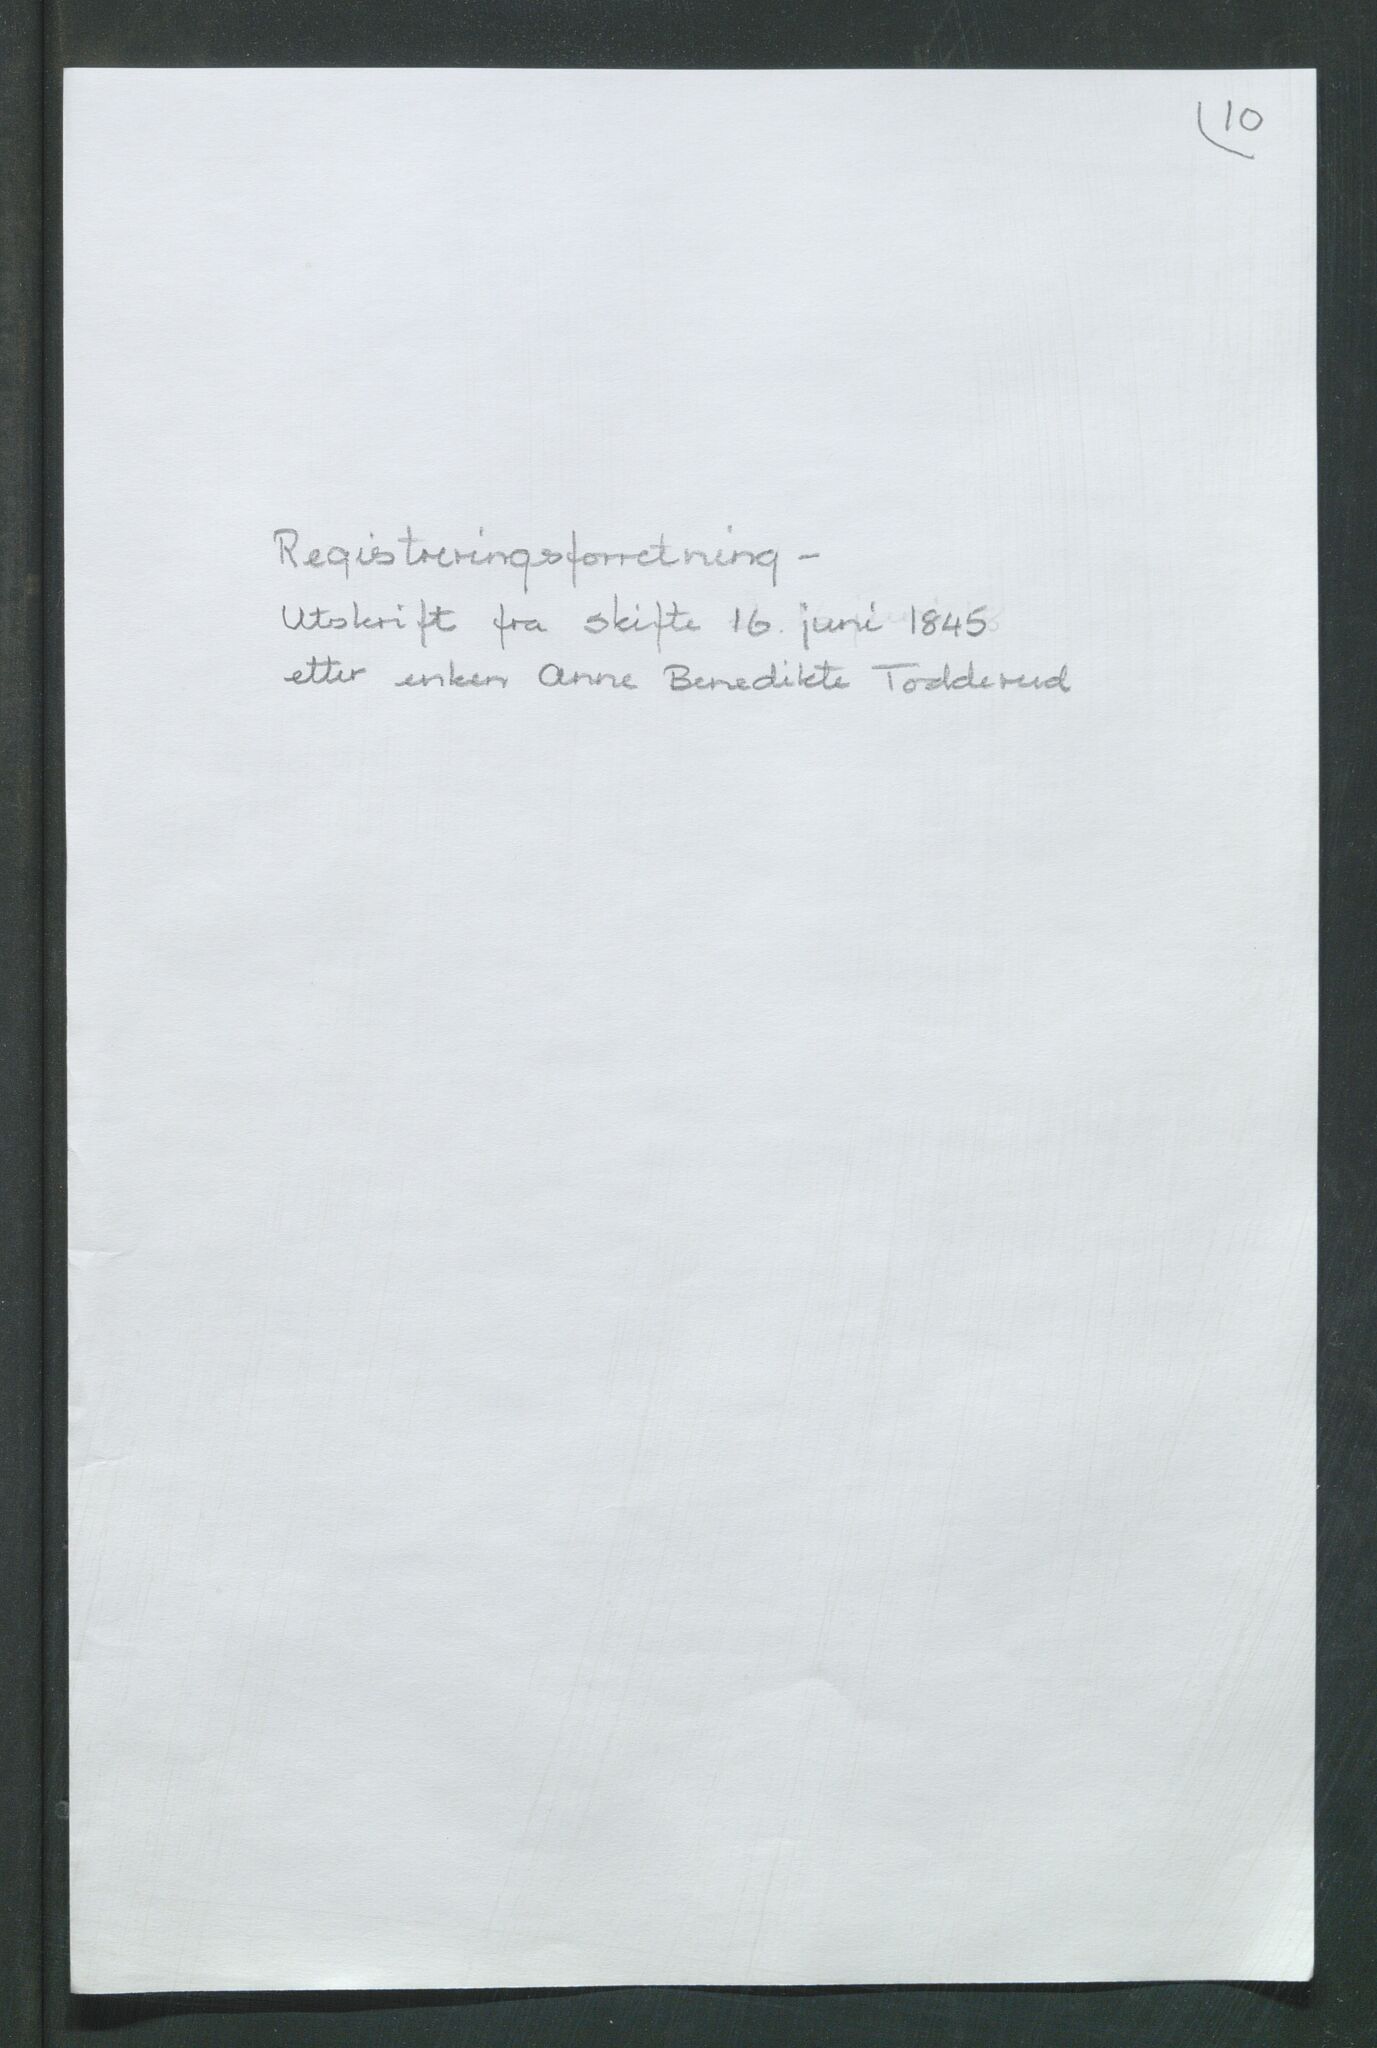 10
Registreringsforretning –
Utskrift fra skifte 16. juni 1845
etter enken Anne Benedikte Todderud